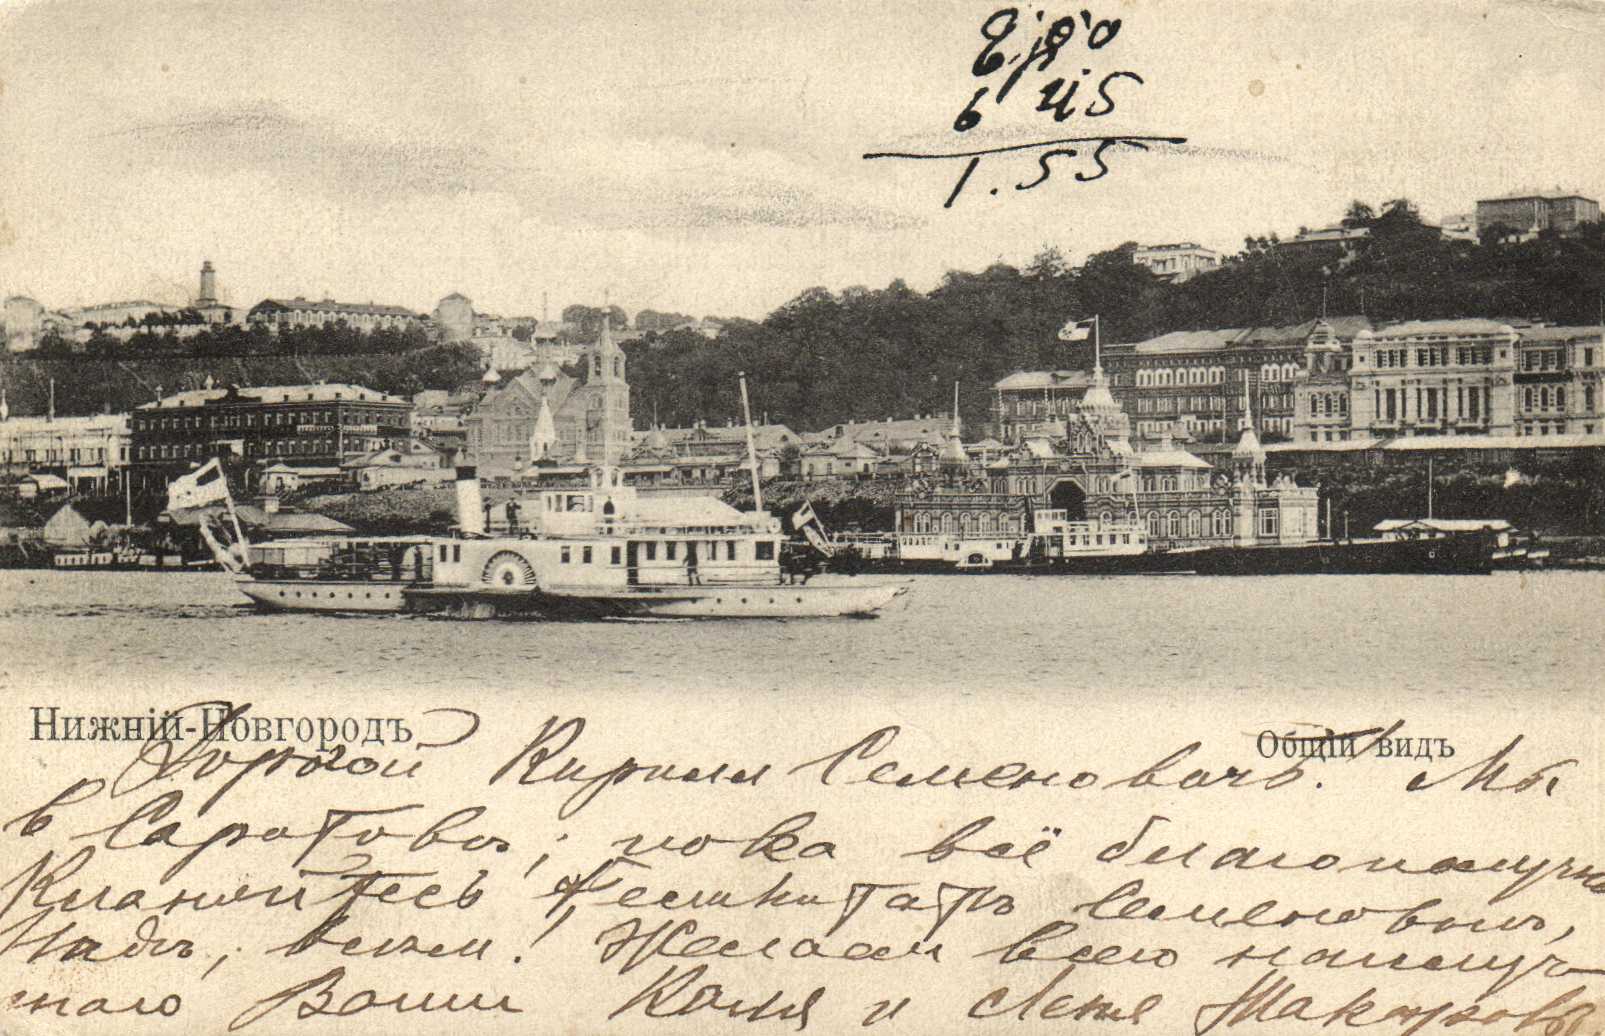 45
1.55
Нижній-Новгородъ
Общій видъ
Дорогой Кирилл Семеновичъ! Мы
в Саратовѣ; пока всё благополучно
Кланяйтесь Семеновнѣ,
Надѣ, всем! Желаем всего наилуч-
шаго Ваши Коля и Леня